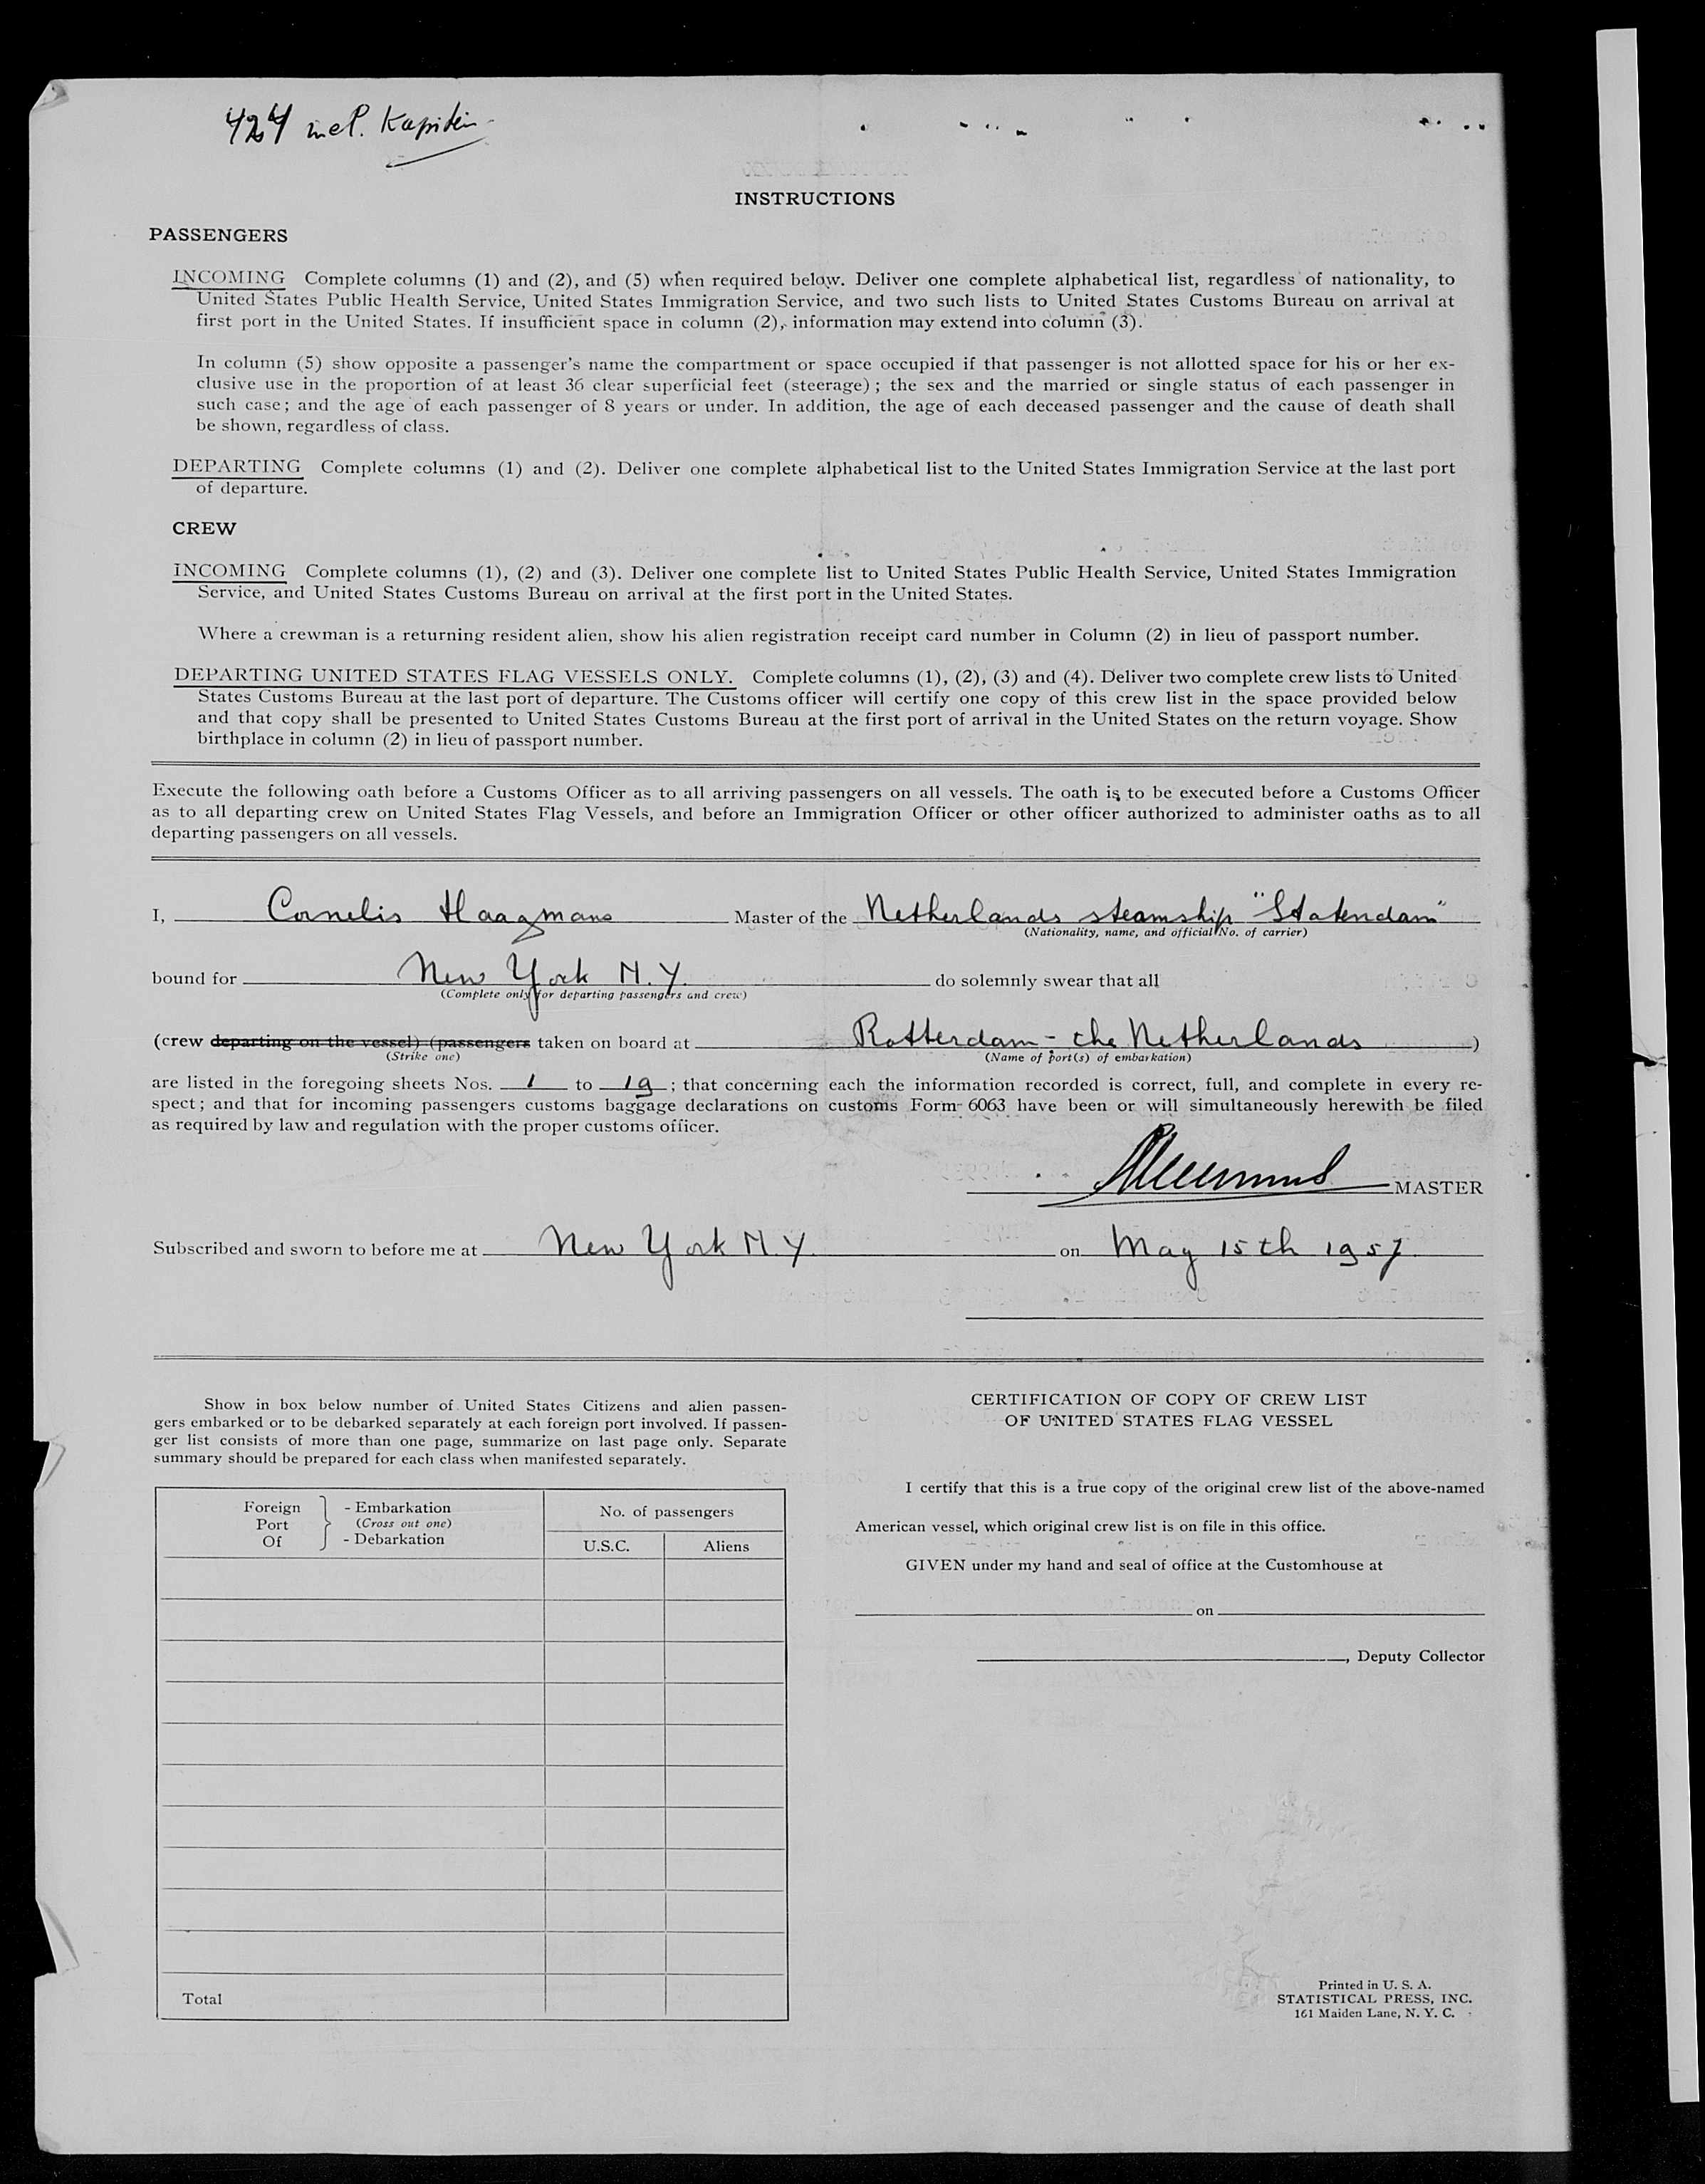 424 incl. Kapitein
INSTRUCTIONS
PASSENGERS
INCOMING Complete columns (1) and (2), and (5) when required below. Deliver one complete alphabetical list, regardless of nationality, to
United States Public Health Service, United States Immigration Service, and two such lists to United States Customs Bureau on arrival at
first port in the United States. If insufficient space in column (2), information may extend into column (3).
In column (5) show opposite a passenger's name the compartment or space occupied if that passenger is not allotted space for his or her ex-
clusive use in the proportion of at least 36 clear superficial feet (steerage); the sex and the married or single status of each passenger in
such case; and the age of each passenger of 8 years or under. In addition, the age of each deceased passenger and the cause of death shall
be shown, regardless of class.
DEPARTING Complete columns (1) and (2). Deliver one complete alphabetical list to the United States Immigration Service at the last port
of departure.
CREW
INCOMING Complete columns (1), (2) and (3). Deliver one complete list to United States Public Health Service, United States Immigration
Service, and United States Customs Bureau on arrival at the first port in the United States.
Where a crewman is a returning resident alien, show his alien registration receipt card number in Column (2) in lieu of passport number.
DEPARTING UNITED STATES FLAG VESSELS ONLY. Complete columns (1), (2), (3) and (4). Deliver two complete crew lists to United
States Customs Bureau at the last port of departure. The Customs officer will certify one copy of this crew list in the space provided below
and that copy shall be presented to United States Customs Bureau at the first port of arrival in the United States on the return voyage. Show
birthplace in column (2) in lieu of passport number.
Execute the following oath before a Customs Officer as to all arriving passengers on all vessels. The oath is to be executed before a Customs Officer
as to all departing crew on United States Flag Vessels, and before an Immigration Officer or other officer authorized to administer oaths as to all
departing passengers on all vessels.
I, Cornelis Haagmans Master of the Netherlands steamship "Statendam"
(Nationality, name, and official No. of carrier)
bound for New York N.Y. do solemnly swear that all
(Complete only for departing passengers and crew)
(crew departing on the vessel) (passengers taken on board at Rotterdam - the Netherlands )
(Strike one) (Name of port(s) of embarkation)
are listed in the foregoing sheets Nos. 1 to 19 ; that concerning each the information recorded is correct, full, and complete in every re-
spect; and that for incoming passengers customs baggage declarations on customs Form 6063 have been or will simultaneously herewith be filed
as required by law and regulation with the proper customs officer.
MASTER
Subscribed and sworn to before me at New York N.Y. on May 15th 1957.
Show in box below number of United States Citizens and alien passen-
gers embarked or to be debarked separately at each foreign port involved. If passen-
ger list consists of more than one page, summarize on last page only. Separate
summary should be prepared for each class when manifested separately.
Foreign Port Of
- Embarkation
(Cross out one)
- Debarkation
No. of passengers
U.S.C. Aliens
Total
CERTIFICATION OF COPY OF CREW LIST
OF UNITED STATES FLAG VESSEL
I certify that this is a true copy of the original crew list of the above-named
American vessel, which original crew list is on file in this office.
GIVEN under my hand and seal of office at the Customhouse at
on
, Deputy Collector
Printed in U. S. A.
STATISTICAL PRESS, INC.
161 Maiden Lane, N. Y. C.